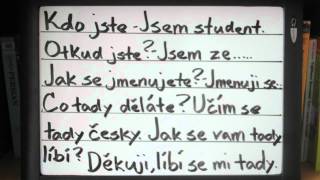 Kdo jste-Jsem student.
Otkud jste?-Jsem ze.....
Jak se jmenujete?-Jmenuji se...
Co tady děláte? Učím se
tady česky. Jak se vam tady
líbí? Děkuji, líbí se mi tady.